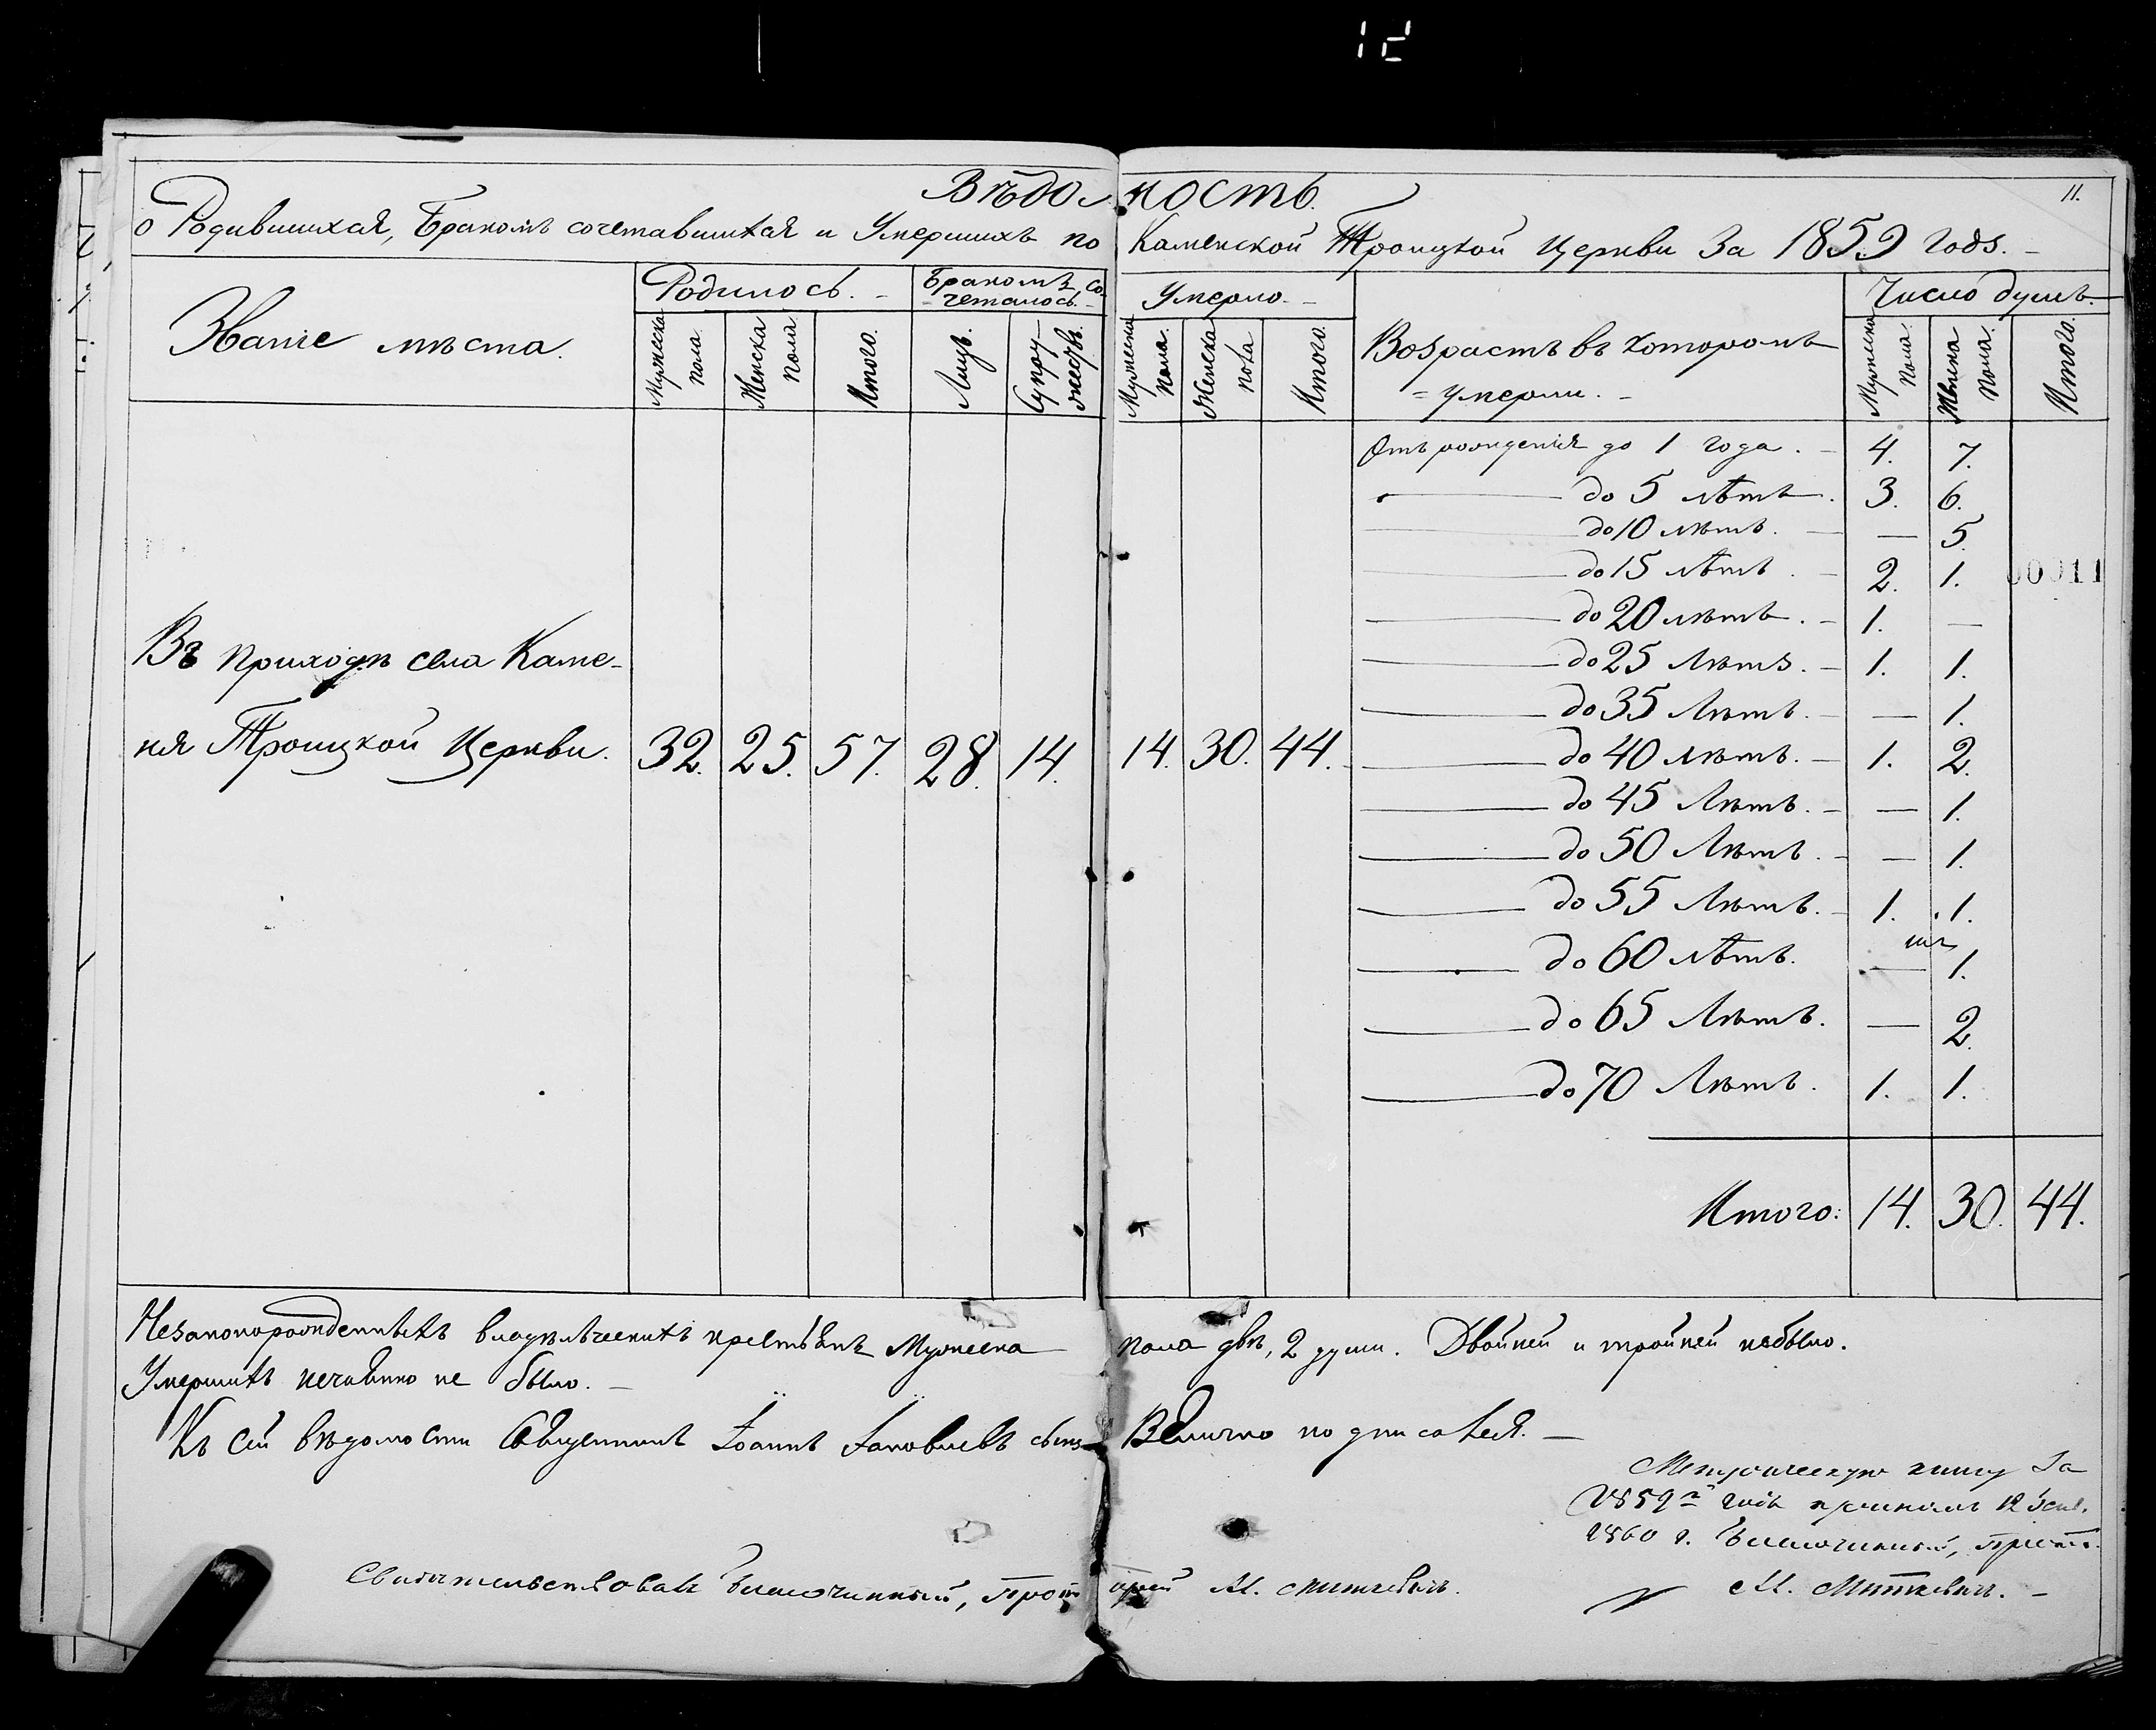 Вѣдомость
11.
о Родившихся, Бракомъ сочетавшихся и Умершихъ по Каменской Троицкой Церкви За 1859 Годъ. –
Званіе мѣста.
Родилось. –
Бракомъ со-
четалось. –
Умерло. –
Возрастъ въ которомъ
= умерли. –
Число душъ.
Мужеска пола.
Женска пола
Итого.
Лицъ.
Супру-
жествъ.
Мужеска пола.
Женска пола
Итого.
Мужеска пола.
Женска пола.
Итого.
Отъ рожденія до 1 года. – 4. 7.
до 5 лѣтъ. 3. 6.
до 10 лѣтъ. — 5.
до 15 лѣтъ. – 2. 1.
00011
до 20 лѣтъ. – 1. —
до 25 Лѣтъ. – 1. 1.
до 35 Лѣтъ. – — 1.
до 40 лѣтъ. – 1. 2.
до 45 Лѣтъ. – — 1.
до 50 Лѣтъ. – — 1.
до 55 Лѣтъ. – 1. 1.
до 60 лѣтъ. — 1.
до 65 Лѣтъ. — 2.
до 70 Лѣтъ. 1. 1.
Въ приходѣ села Каме-
ня Троицкой Церкви. 32. 25. 57. 28. 14. 14. 30. 44.
Итого: 14. 30. 44.
Незаконорожденныхъ владѣльческихъ крестьянъ Мужеска пола двѣ, 2 души. Двойней и тройней небыло.
Умершихъ нечаянно не было. –
Къ сей вѣдомости Священникъ Іоаннъ Іаковлевъ сынъ Величко подписался. —
Метрическую книгу За
1859й годъ принялъ 12 Генв.
1860 г. Благочинный, Прот.
М. Миткевичъ. –
Свидѣтельствовалъ Благочинный, Протоіерей М. Миткевичъ.